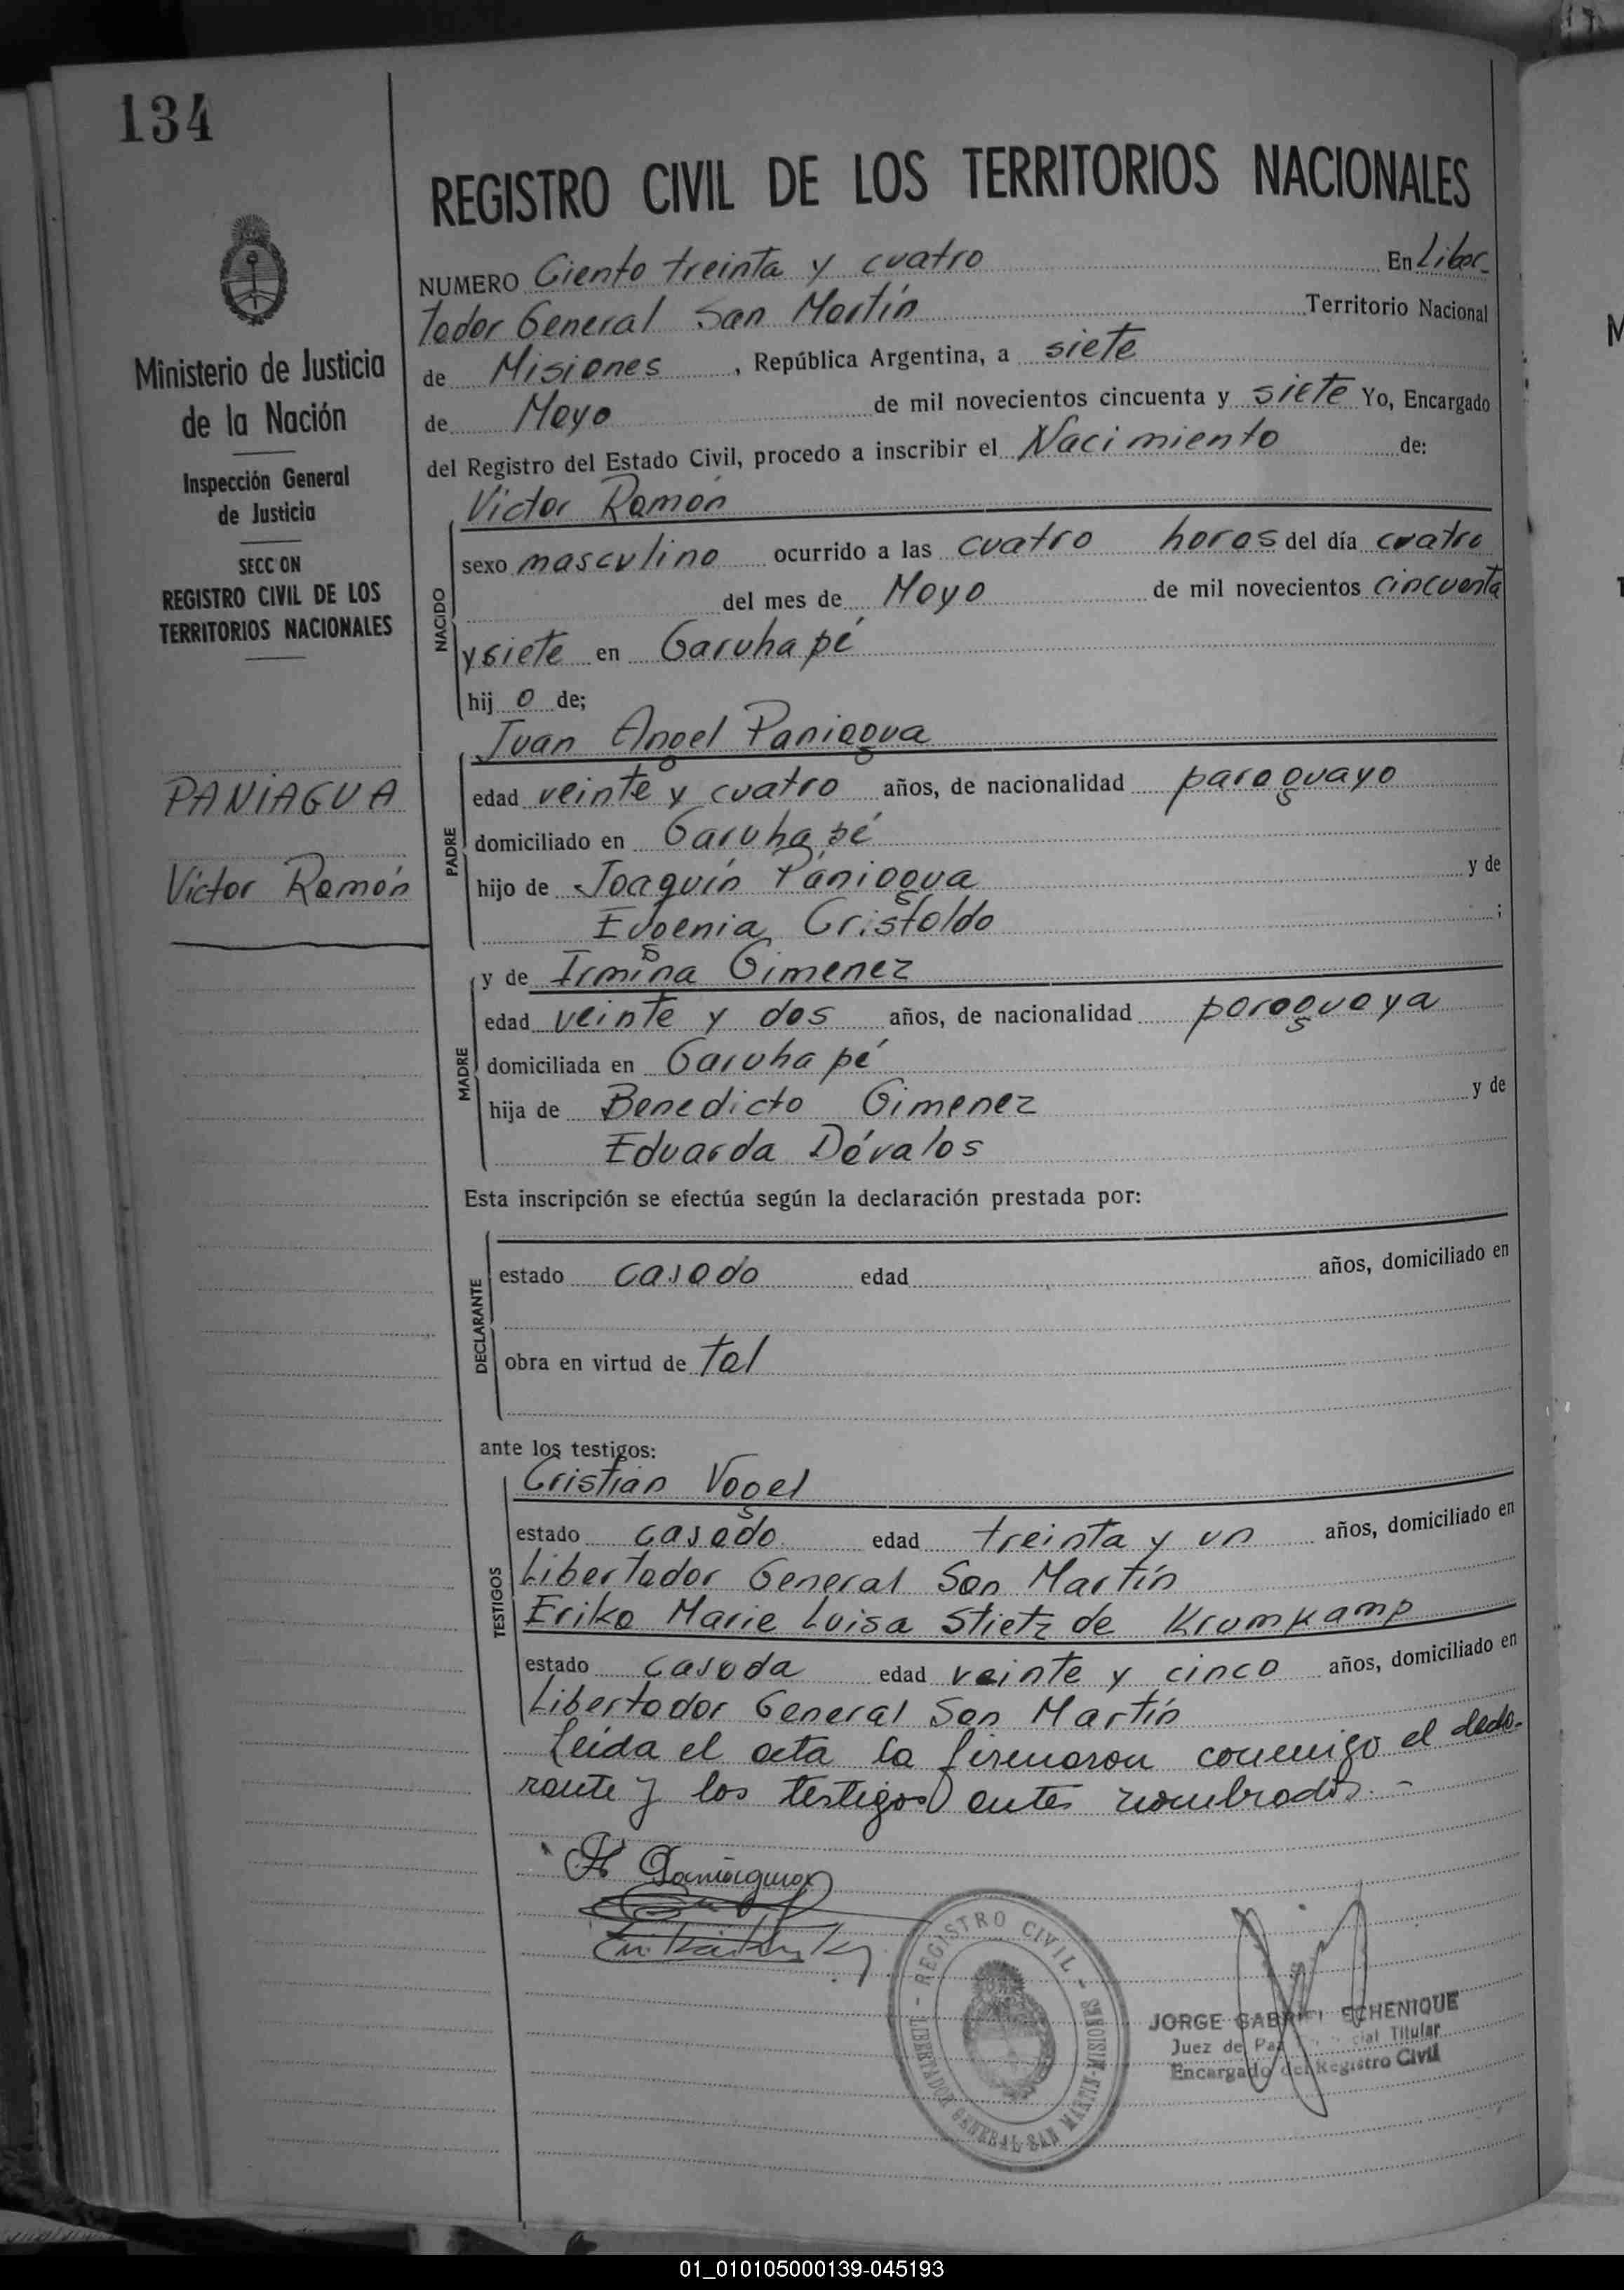 134
REGISTRO CIVIL DE LOS TERRITORIOS NACIONALES
Ministerio de Justicia
de la Nación
Inspección General
de Justicia
SECC ON
REGISTRO CIVIL DE LOS
TERRITORIOS NACIONALES
PANIAGUA
Victor Ramón
NUMERO Ciento treinta y cuatro En Liber-
tador General San Martín Territorio Nacional
de Misiones, República Argentina, a siete
de Mayo de mil novecientos cincuenta y siete Yo, Encargado
del Registro del Estado Civil, procedo a inscribir el Nacimiento de:
Victor Ramón
NACIDO
sexo masculino ocurrido a las cuatro horas del día cuatro
del mes de Mayo de mil novecientos cincuenta
y siete en Garuhapé
hij o de;
Juan Angel Paniagua
PADRE
edad veinte y cuatro años, de nacionalidad paraguayo
domiciliado en Garuhapé
hijo de Joaquín Paniagua y de
Eugenia Cristaldo ;
y de Irmina Gimenez
MADRE
edad veinte y dos años, de nacionalidad paraguaya
domiciliada en Garuhapé
hija de Benedicto Gimenez y de
Eduarda Dávalos
Esta inscripción se efectúa según la declaración prestada por:
DECLARANTE
estado casado edad años, domiciliado en
obra en virtud de tal
ante los testigos:
TESTIGOS
Cristian Vogel
estado casado edad treinta y un años, domiciliado en
Libertador General San Martín
Erika Marie Luisa Stietz de Krumkamp
estado casada edad veinte y cinco años, domiciliado en
Libertador General San Martín
Leida el acta la firmaron conmigo el decla-
rante y los testigos antes nombrados.-
Paniagua
REGISTRO CIVIL - MISIONES
LIBERTADOR GENERAL SAN MARTIN
JORGE GABRIEL ECHENIQUE
Juez de Paz cial Titular
Encargado del Registro Civil
01_010105000139-045193